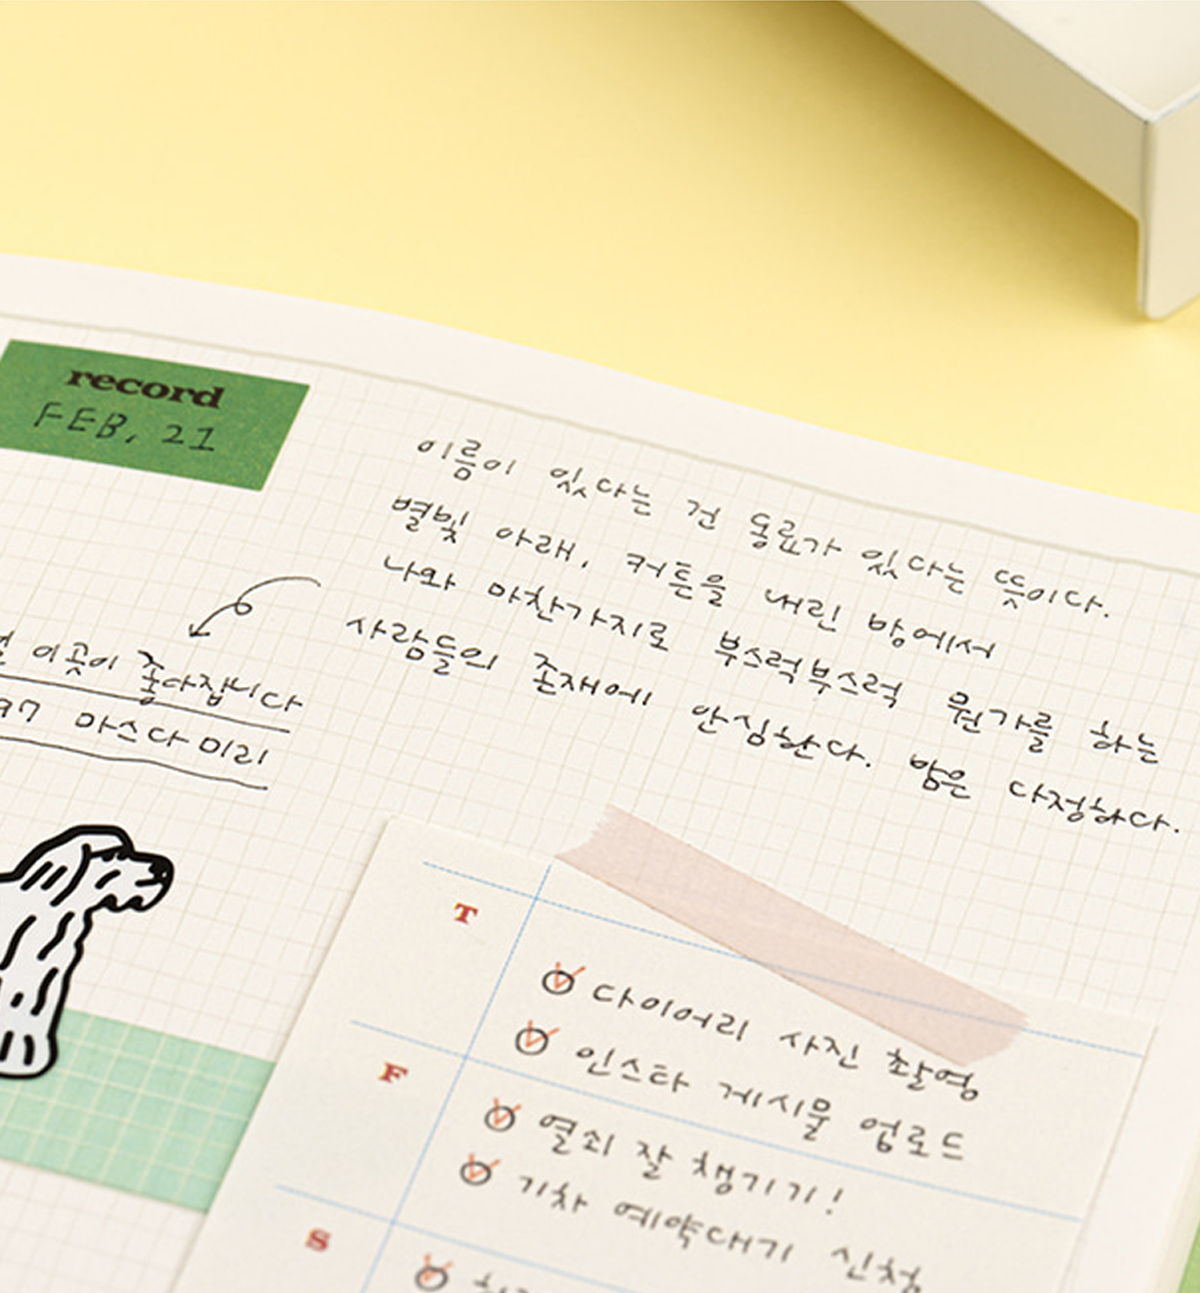 record
FEB, 21
이름이 있다는 건 동료가 있다는 뜻이다.
별빛 아래, 커튼을 내린 방에서
나와 마찬가지로 부스럭부스럭 뭔가를 하는
사람들의 존재에 안심한다. 밤은 다정하다.
이곳이 좋아집니다
97 마스다 미리
T
다이어리 사진 촬영
인스타 게시물 업로드
F
열쇠 잘 챙기기!
기차 예약대기 신청
S